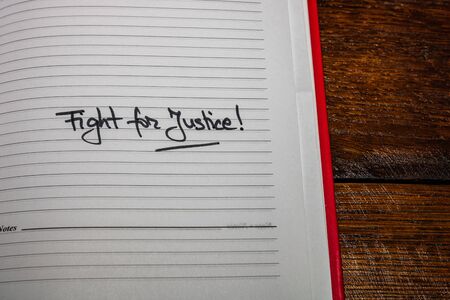 Fight for Justice!
Notes